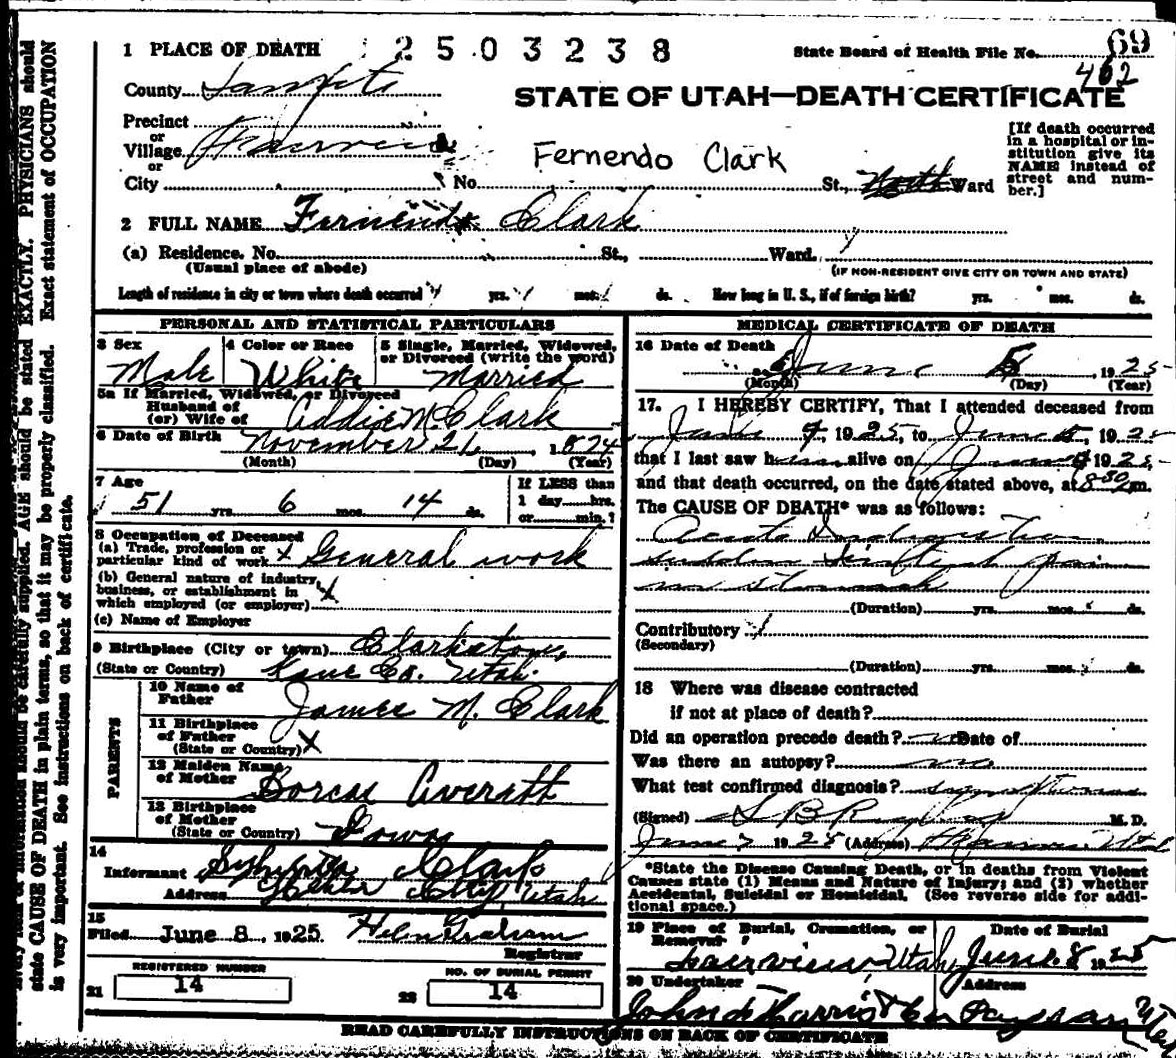 1 PLACE OF DEATH 2503238 State Board of Health File No. 69
462
County Sanpete
STATE OF UTAH—DEATH CERTIFICATE
Precinct
or
Village Fairview
or
City No. St., Ward
Fernendo Clark
[If death occurred
in a hospital or in-
stitution give its
NAME instead of
street and num-
ber.]
2 FULL NAME Fernendo Clark
(a) Residence. No. St., Ward.
(Usual place of abode) (IF NON-RESIDENT GIVE CITY OR TOWN AND STATE)
Length of residence in city or town where death occurred yrs. mos. ds. How long in U. S., if of foreign birth? yrs. mos. ds.
PERSONAL AND STATISTICAL PARTICULARS
3 Sex 4 Color or Race 5 Single, Married, Widowed,
or Divorced (write the word)
Male White Married
5a If Married, Widowed, or Divorced
Husband of
(or) Wife of Addie M Clark
6 Date of Birth November 21, 1874
(Month) (Day) (Year)
7 Age If LESS than
51 yrs. 6 mos. 14 ds. 1 day hrs.
or min.?
8 Occupation of Deceased
(a) Trade, profession or
particular kind of work x General work
(b) General nature of industry,
business, or establishment in
which employed (or employer) x
(c) Name of Employer
9 Birthplace (City or town)
(State or Country) Kane Co. Utah.
PARENTS
10 Name of
Father James M. Clark
11 Birthplace
of Father
(State or Country) x
12 Maiden Name
of Mother Averett
13 Birthplace
of Mother
(State or Country) Iowa
14
Informant Clark
Address City, Utah
15
Filed June 8, 1925 Helen Graham
Registrar
REGISTERED NUMBER NO. OF BURIAL PERMIT
21 14 22 14
MEDICAL CERTIFICATE OF DEATH
16 Date of Death
June 5 1925
(Month) (Day) (Year)
17. I HEREBY CERTIFY, That I attended deceased from
1925, to June 1925
that I last saw him alive on June 1925
and that death occurred, on the date stated above, at 8:30 m.
The CAUSE OF DEATH* was as follows:
Acute Indigestion
sudden pain
in stomach
(Duration) yrs. mos. ds.
Contributory
(Secondary)
(Duration) yrs. mos. ds.
18 Where was disease contracted
if not at place of death?
Did an operation precede death? no Date of
Was there an autopsy? no
What test confirmed diagnosis?
(Signed) M. D.
June 7 1925 (Address)
*State the Disease Causing Death, or in deaths from Violent
Causes state (1) Means and Nature of Injury; and (2) whether
Accidental, Suicidal or Homicidal. (See reverse side for addi-
tional space.)
19 Place of Burial, Cremation, or
Removal Date of Burial
Fairview, Utah June 8 1925
20 Undertaker Address
Payson Utah
READ CAREFULLY INSTRUCTIONS ON BACK OF CERTIFICATE
should be carefully supplied. AGE should be stated EXACTLY. PHYSICIANS should
state CAUSE OF DEATH in plain terms, so that it may be properly classified. Exact statement of OCCUPATION
is very important. See instructions on back of certificate.